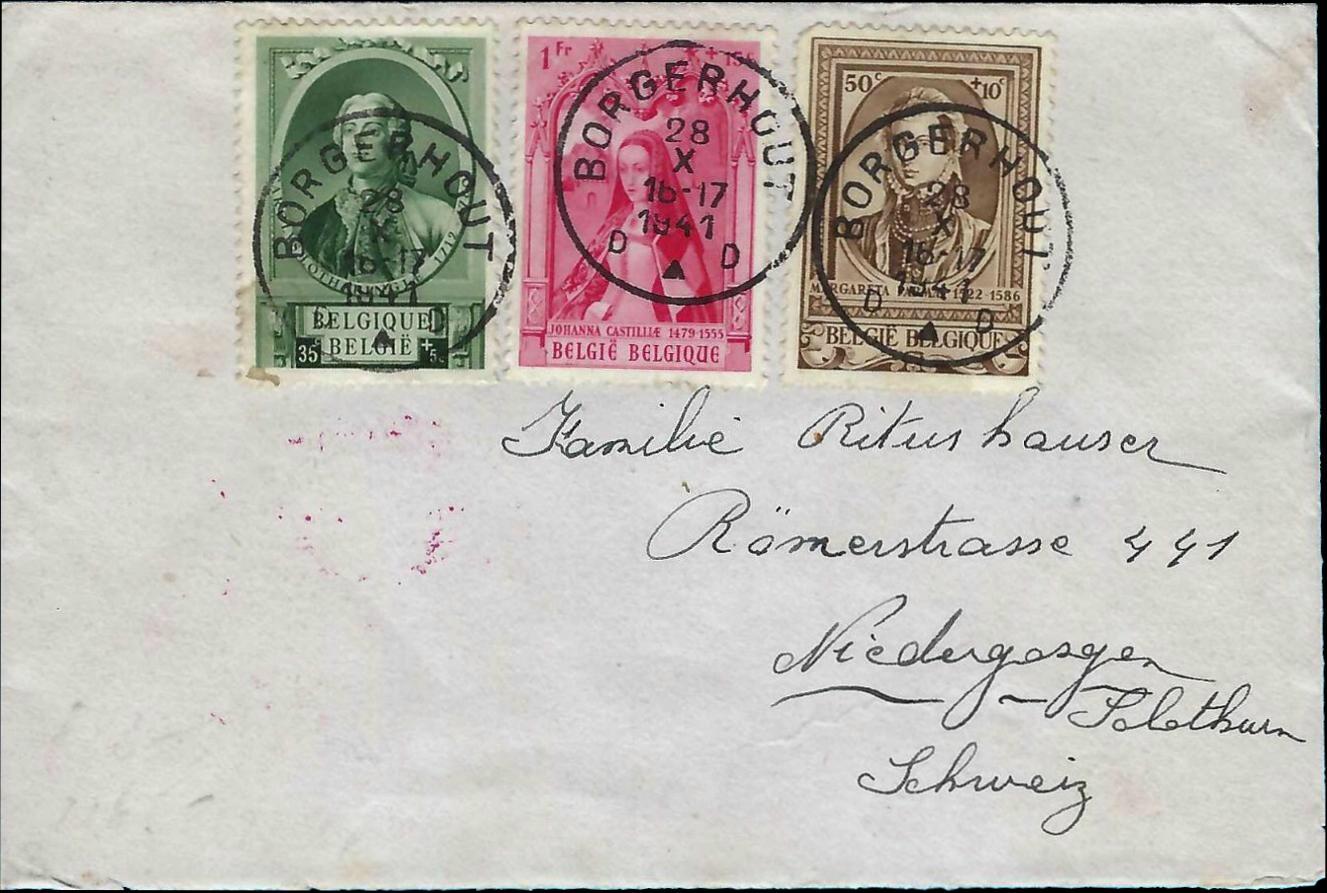 BORGERHOUT
28
X
16-17
1941
D D
BELGIQUE
BELGIË
35 +5
1 Fr +15
BORGERHOUT
28
X
16-17
1941
D D
JOHANNA CASTILLIÆ 1479-1555
BELGIË BELGIQUE
50 c +10 c
BORGERHOUT
28
X
16-17
1941
D D
MARGARETA 1522-1586
BELGIË BELGIQUE
Familie Ritushauser
Römerstrasse 441
Niedergosgen
Solothurn
Schweiz